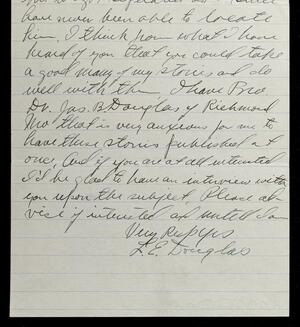 have never been able to locate
him, I think from what I have
heard of you that you could take
a good many of my stories and do
well with them. I have Bro
Dr. Jas. B. Douglas of Richmond
Mo that is very anxious for me to
have these stories published at
once, And if you are at all interested
I'd be glad to have an interview with
you upon the subject. Please ad-
vice if interested and
Very Resp yrs
L. E. Douglas